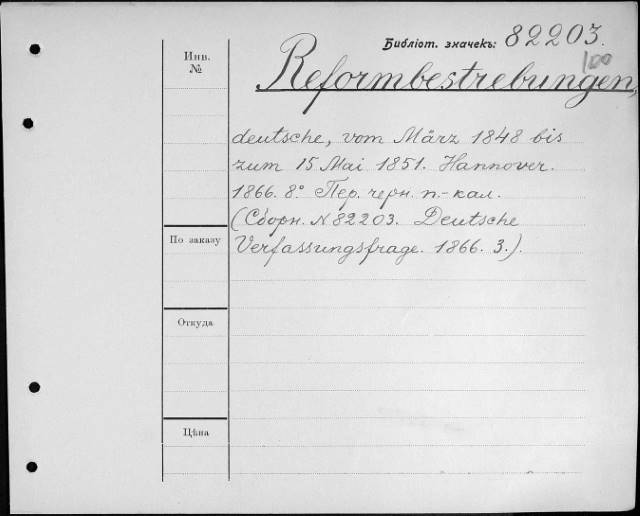 Библіот. значекъ: 82203.
100
Инв.
№
Reformbestrebungen,
deutsche, vom März 1848 bis
zum 15 Mai 1851. Hannover.
1866. 8° Пер. черн. п.-кал.
(Сборн. N 82203. Deutsche
По заказу
Verfassungsfrage. 1866. 3.).
Откуда
Цѣна